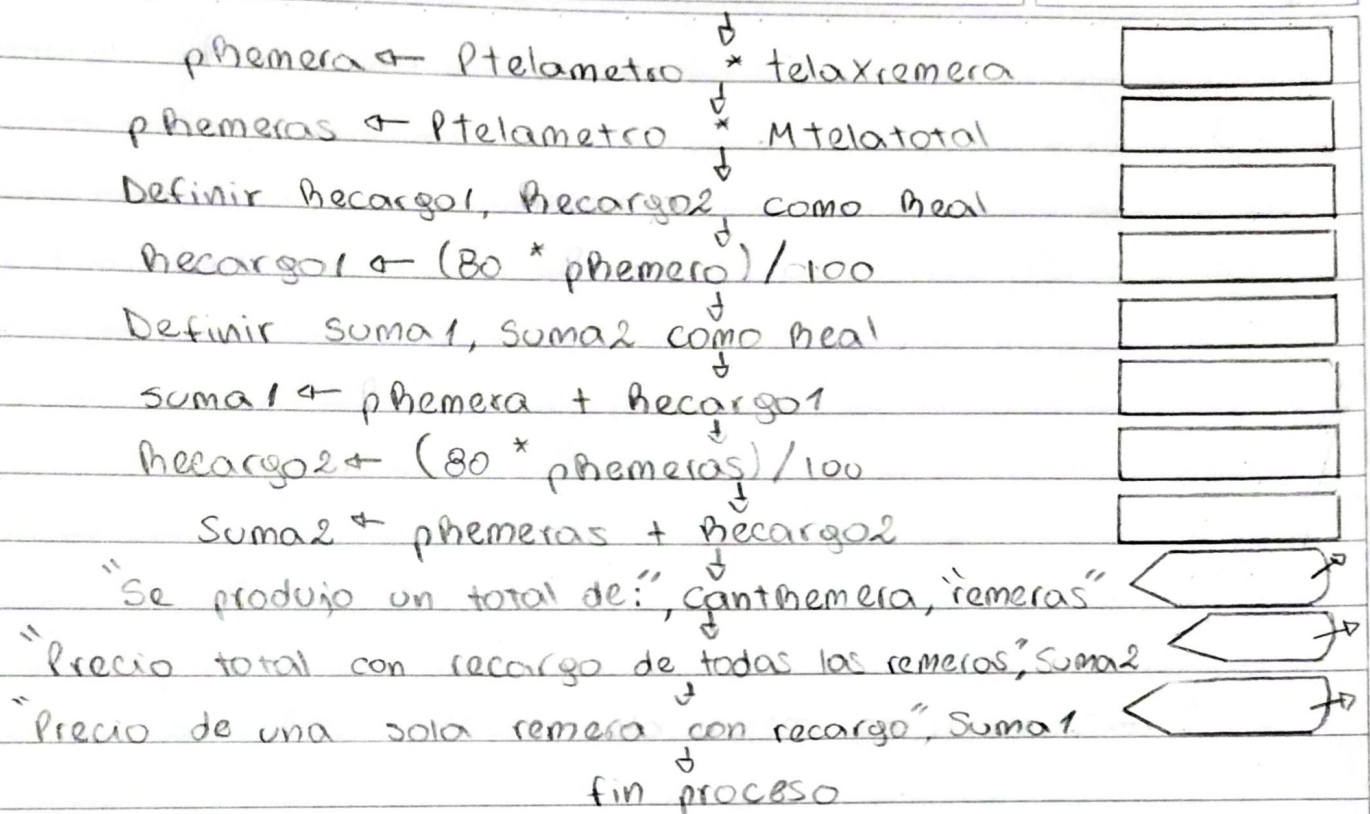 pRemera ← Ptelametro * telaxremera
pRemeras ← Ptelametro * Mtelatotal
Definir Recargo1, Recargo2 como Real
Recargo1 ← (80 * pRemera) / 100
Definir suma1, suma2 como Real
suma1 ← pRemera + Recargo1
Recargo2 ← (80 * pRemeras) / 100
Suma2 ← pRemeras + Recargo2
"Se produjo un total de:", cantRemera, "remeras"
"Precio total con recargo de todas las remeras", Suma2
"Precio de una sola remera con recargo", Suma1
fin proceso